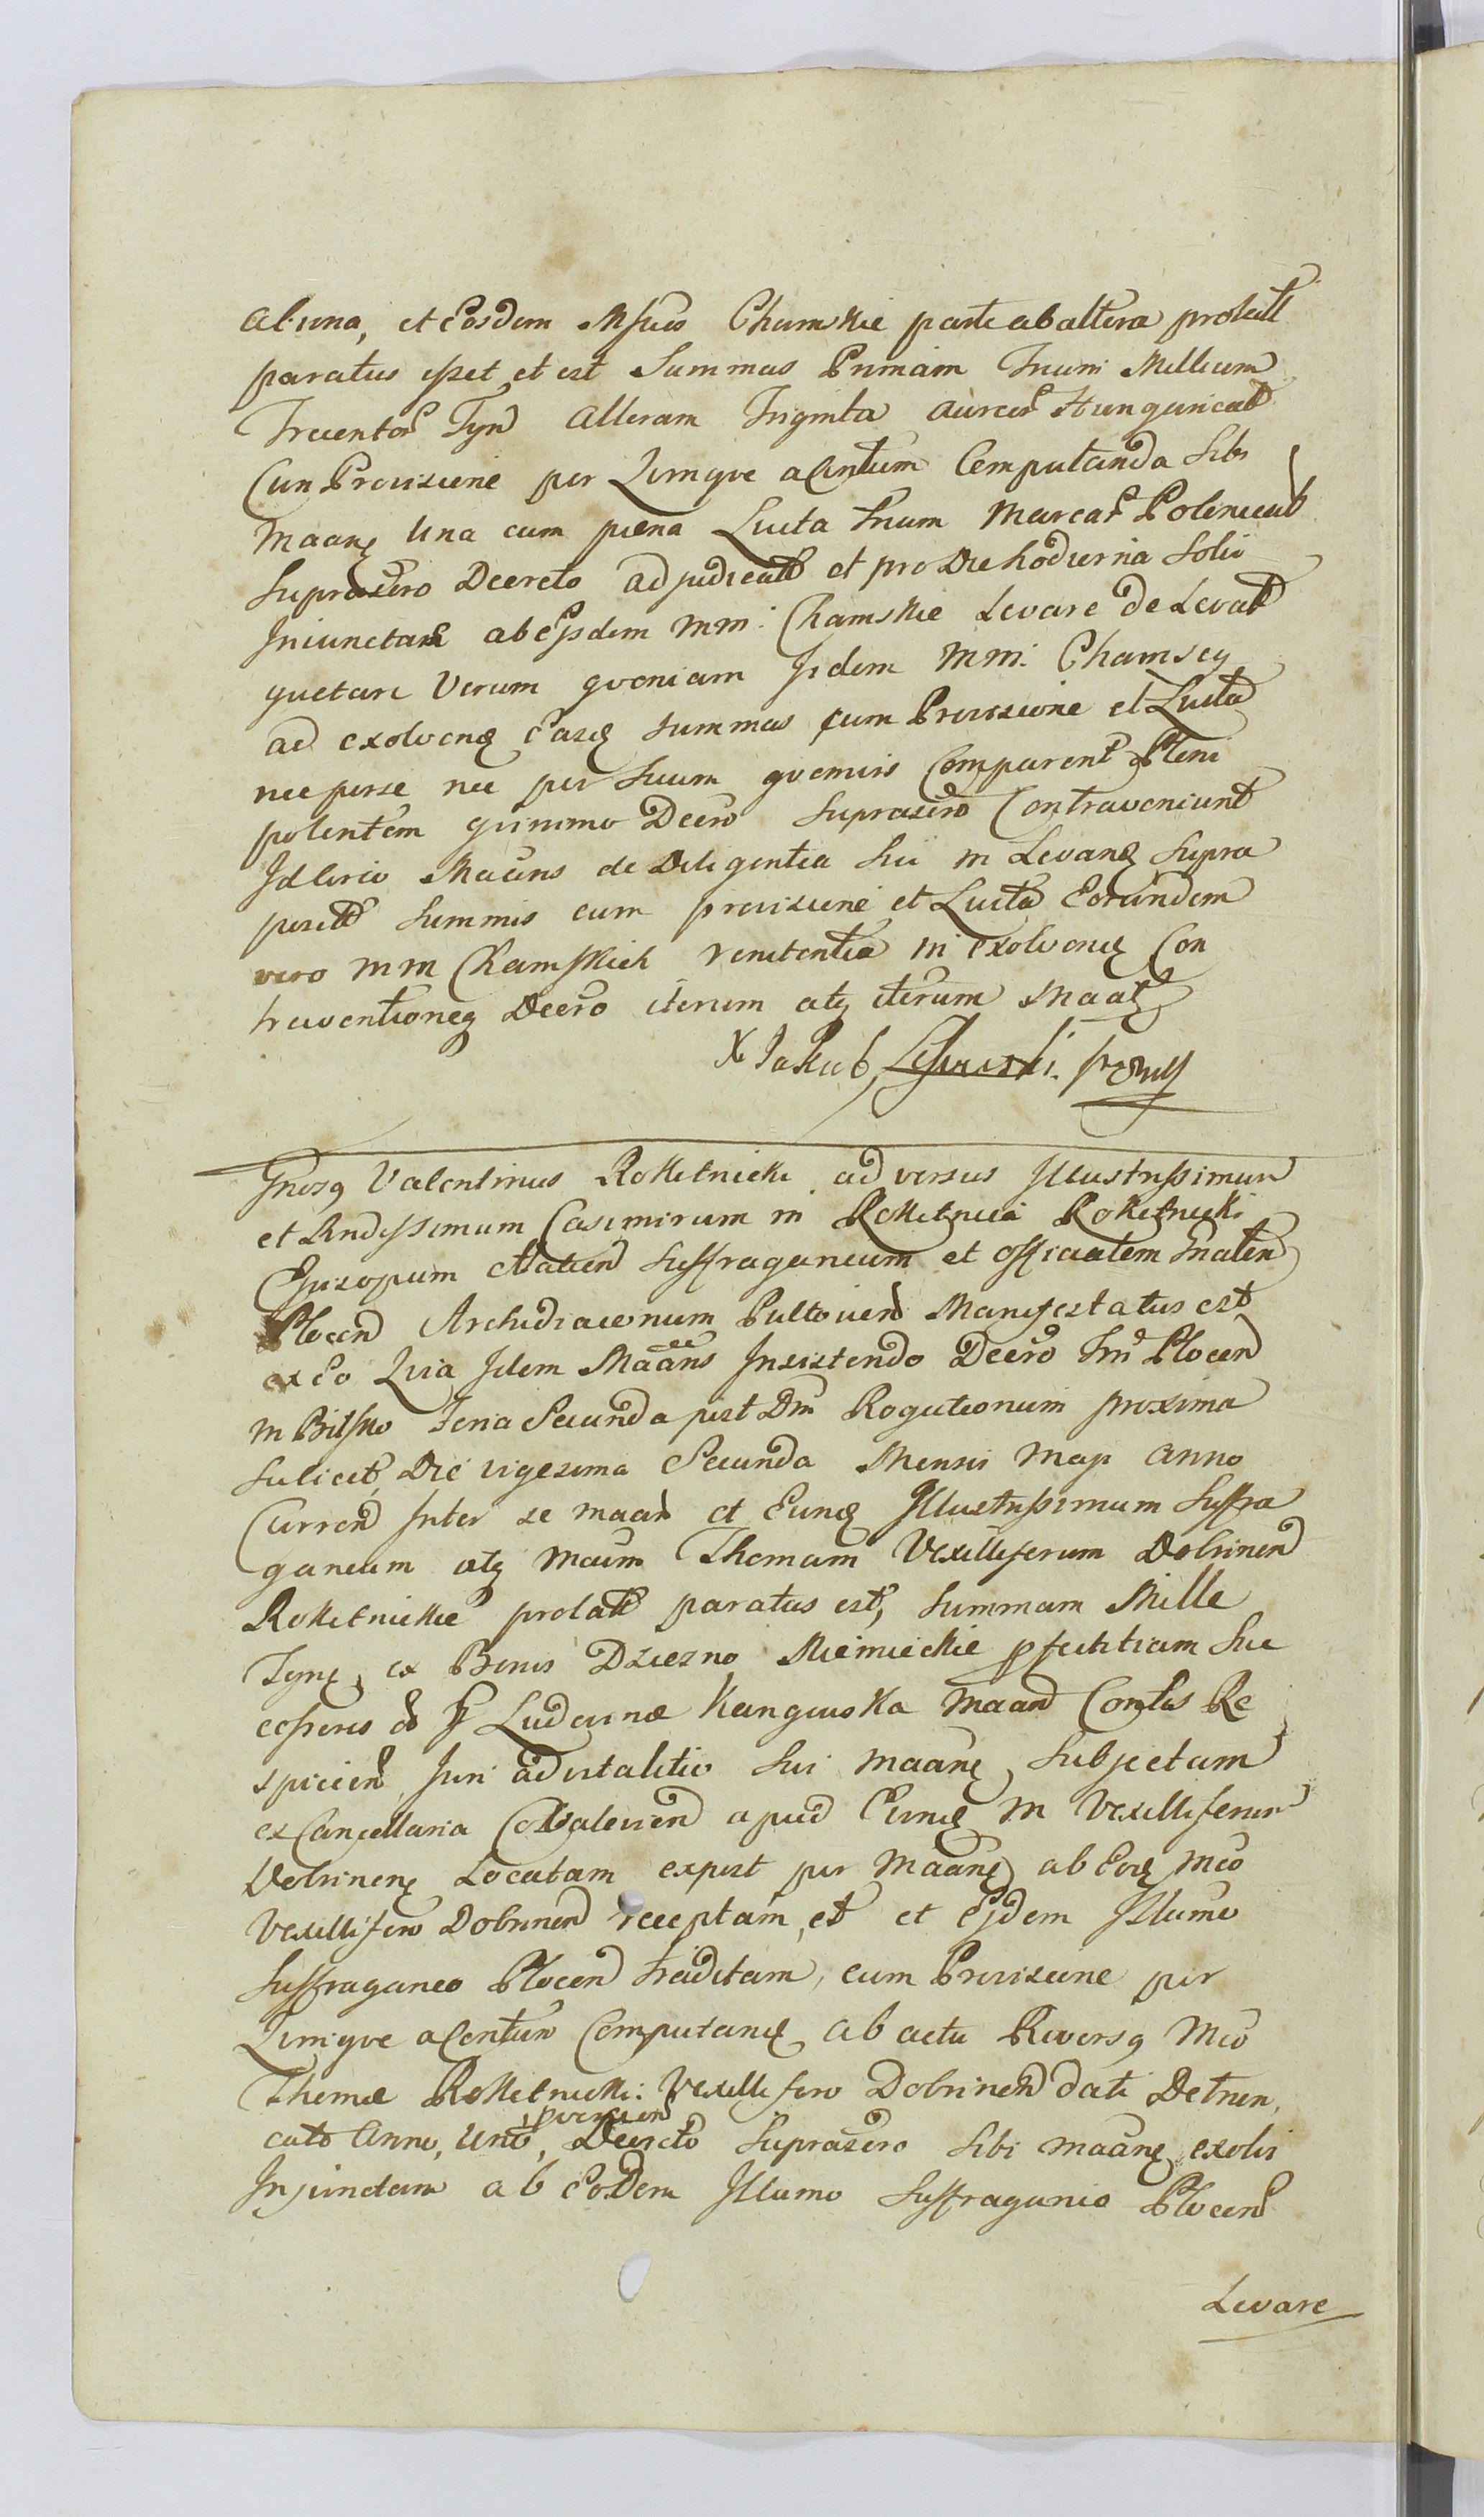 ab una, et Eosdem Mfcos Chamskie parte ab altera prolatt
paratus esset et est Summas Primam Trium Millium
Trecentor Tynf Alteram Triginta aureor Hungarical
Cum Provisione per Quinque a Centum Computanda Sibi
Maane Una cum poena Luita Trium Marcar Polonical
Suprascro Decreto adjudicatt et pro Die hodierna Solvi
Iniunctam ab Eisdem MM: Chamskie Levare de Levatt
quetare Verum quoniam Iidem MM: Chamscy
ad exolvend Easd Summas cum Provisione et Luita
nec per se nec per Suum quemvis Comparent Pleni
potentem quinimo Decro Suprascro Contraveniunt
Idcirco Maans de Diligentia Sui in Levand Supra
positt Summis cum provisione et Luita Eorundem
vero MM Chamskich renitentia in exolvend Con
traventioneq Decro iterum atq iterum Maatg
X Jakub
Gnosq Valentinus Rokitnicki adversus Illustrissimum
et Rndissimum Casimirum in Rokitnica Rokitnicki
Episcopum Suffraganeum et Officialem Gnalem
Plocen Archidiaconum Pultovien Manifestatus est
ex Eo Quia Idem Maans Insistendo Decro Plocen
in Bilsko Feria Secunda post Dm Rogationum proxima
Scilicet Die vigesima Secunda Mensis Maji Anno
Curren Inter se maan et Eund Illustrissimum Suffra
ganeum atq Mcum Thomam Vexilliferum Dobrinen
Rokitnickie prolatt paratus est, Summam Mille
Tynf, ex Bonis Dziezno Niemieckie Suc
cessores Ludovinæ Maan Contis Re
spicien Juri advitalitio Sui Maane, Subjectam
ex Cancellaria apud Eund M Vexilliferum
Dobrinen Locatam expost per Maane ab Eod Mco
Vexillifero Dobrinen receptam, et et Ejdem Illumo
Suffraganeo Plocen traditam, cum Provisione per
Quinque a Centum Computand ab actu Reversq Mco
Thomæ Rokitnicki Vexillifero Dobrinen dati Detrun,
cato Anno, Uno, Decreto Suprascro Sibi Maane exolvi
Injunctam ab Eodem Illumo Suffraganeo Plocen
Levare